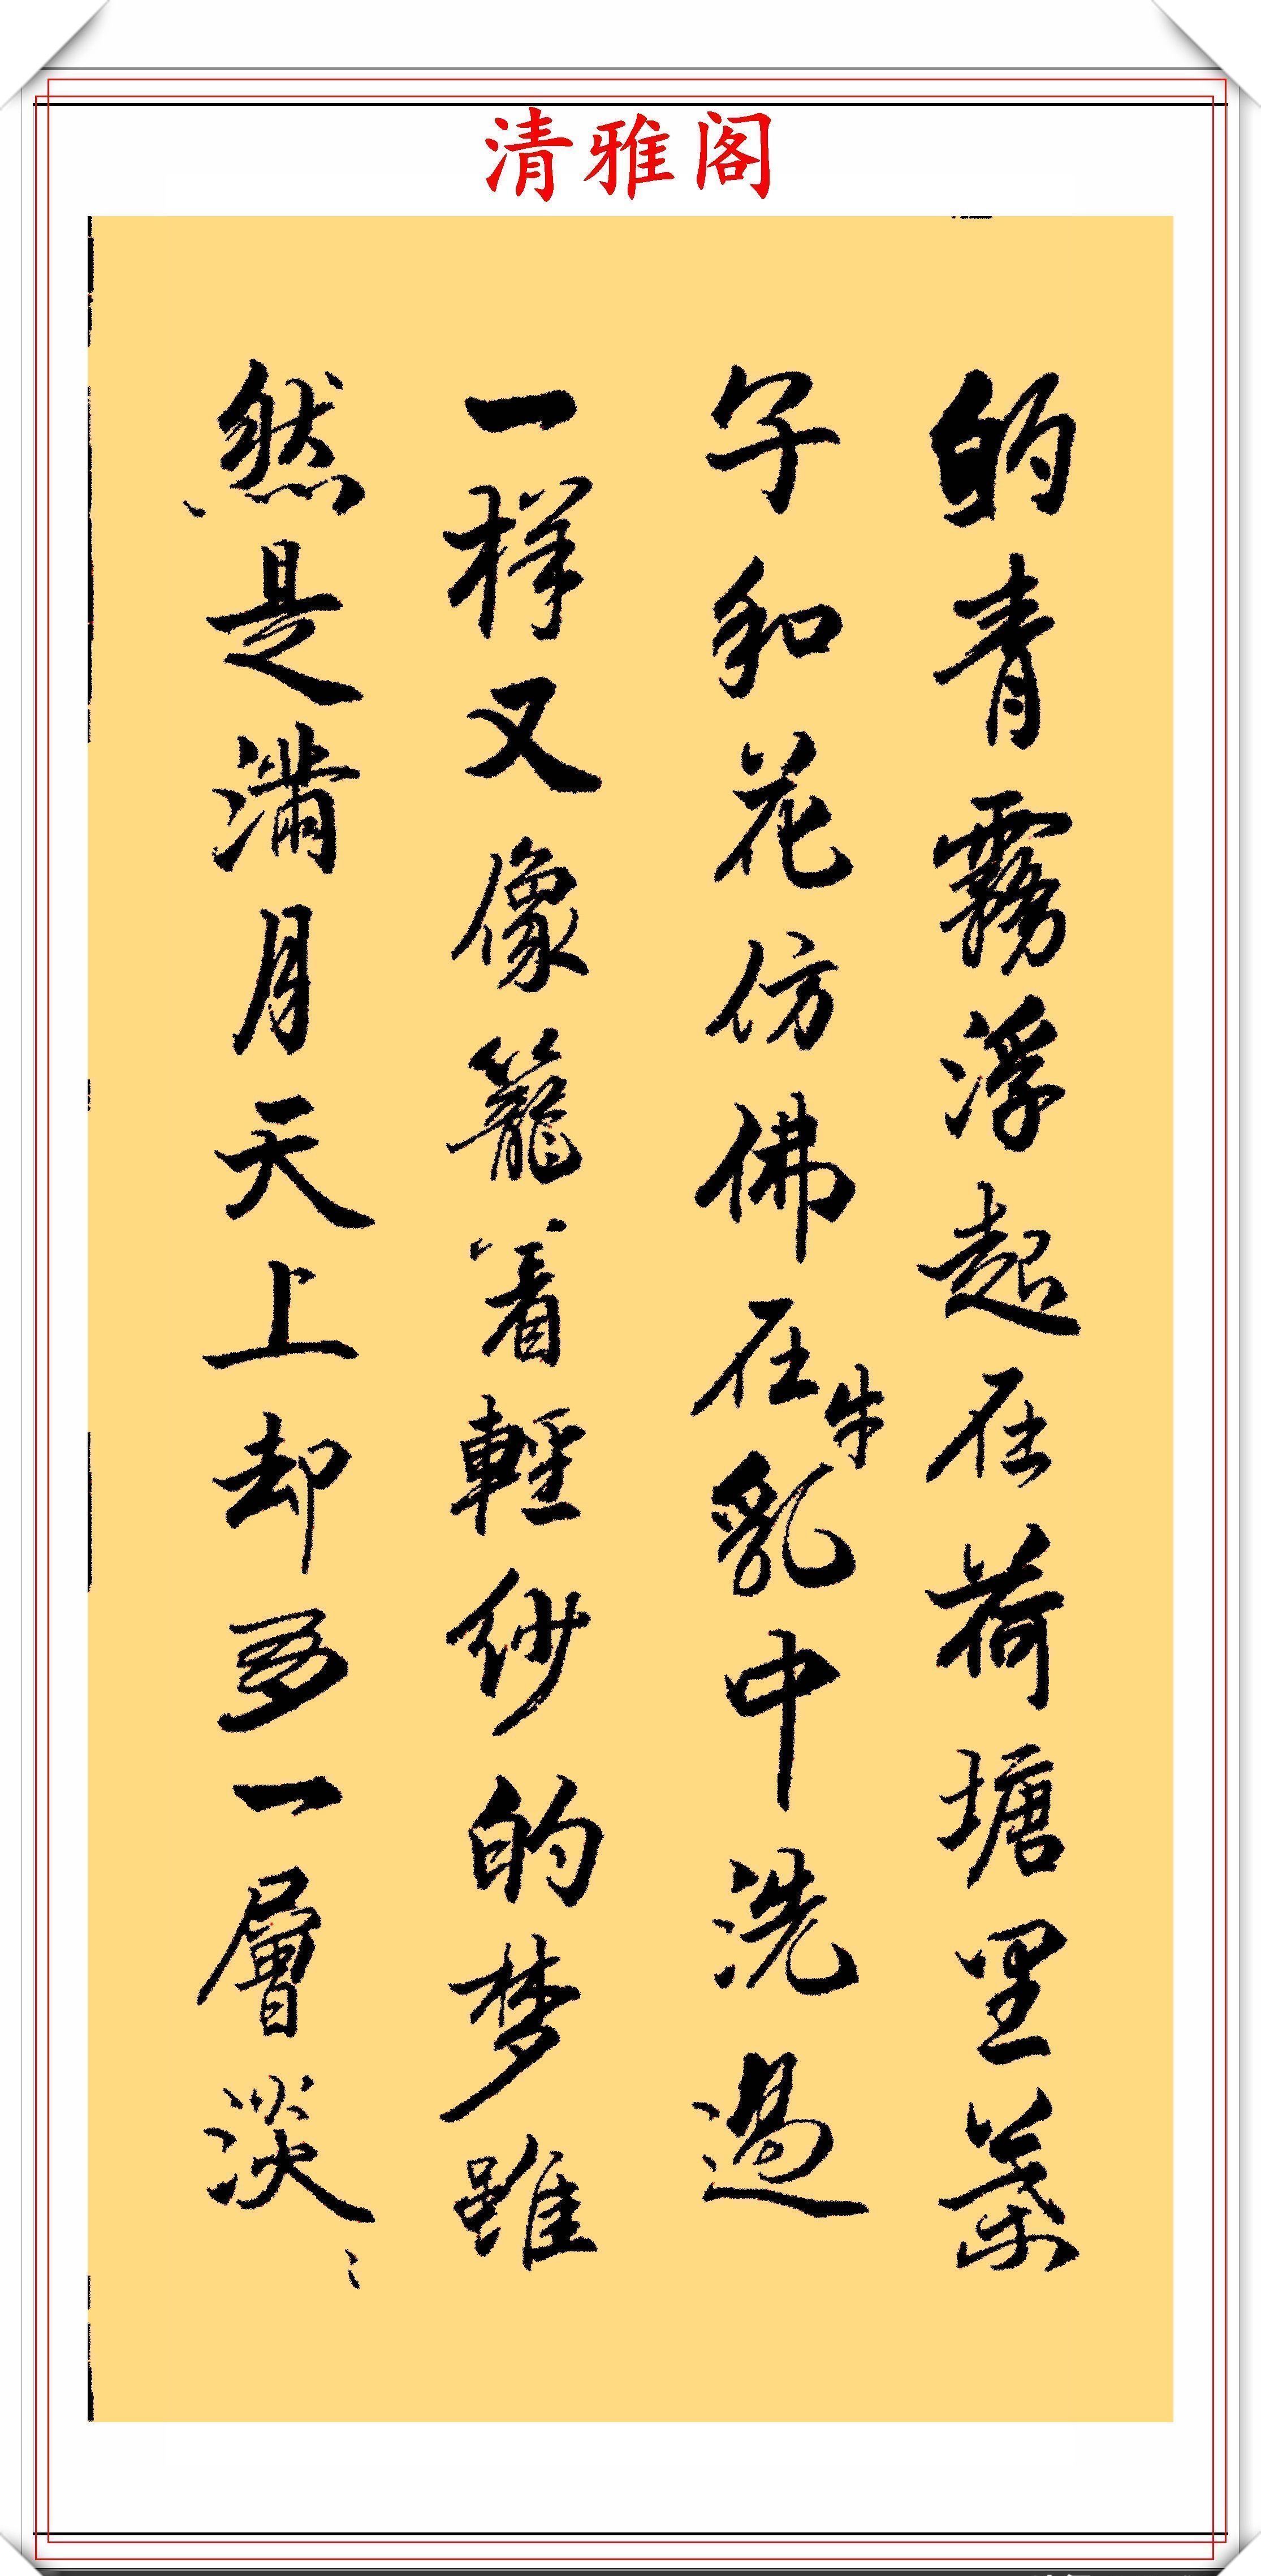 清雅阁
的青霧浮起在荷塘里葉
子和花仿佛在牛乳中洗過
一样又像籠着輕纱的梦雖
然是满月天上却多一層淡〻